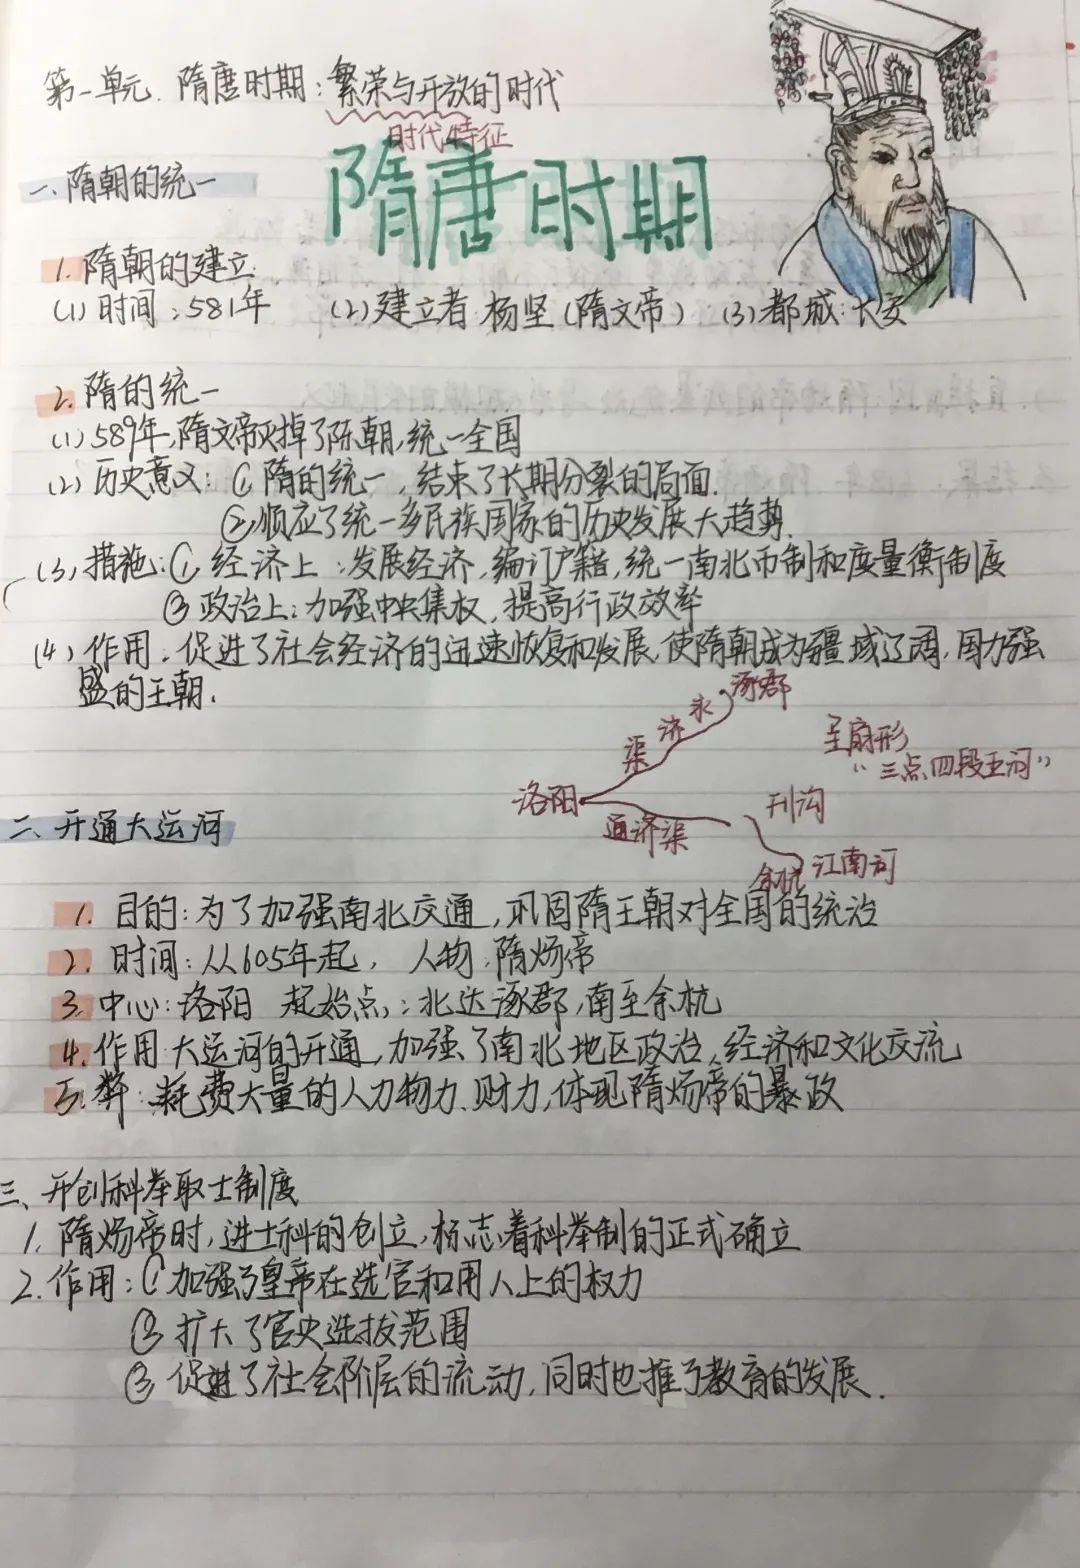 第一单元.隋唐时期:繁荣与开放的时代
时代特征
隋唐时期
一、隋朝的统一
1.隋朝的建立
(1)时间:581年 (2)建立者:杨坚(隋文帝) (3)都城:长安
2.隋的统一
(1)589年,隋文帝灭掉了陈朝,统一全国
(2)历史意义:①隋的统一,结束了长期分裂的局面.
②顺应了统一多民族国家的历史发展大趋势.
(3)措施:①经济上:发展经济,编订户籍,统一南北币制和度量衡制度
②政治上:加强中央集权,提高行政效率
(4)作用:促进了社会经济的迅速恢复和发展,使隋朝成为疆域辽阔,国力强
盛的王朝.
涿郡
永济渠
呈扇形
"三点四段五河"
洛阳
通济渠
刊沟
江南河
余杭
二、开通大运河
1.目的:为了加强南北交通,巩固隋王朝对全国的统治
2.时间:从605年起, 人物:隋炀帝
3.中心:洛阳 起始点:北达涿郡,南至余杭
4.作用:大运河的开通,加强了南北地区政治,经济和文化交流
5.弊:耗费大量的人力物力、财力,体现隋炀帝的暴政
三、开创科举取士制度
1.隋炀帝时,进士科的创立,标志着科举制的正式确立
2.作用:①加强了皇帝在选官和用人上的权力
②扩大了官吏选拔范围
③促进了社会阶层的流动,同时也推了教育的发展.